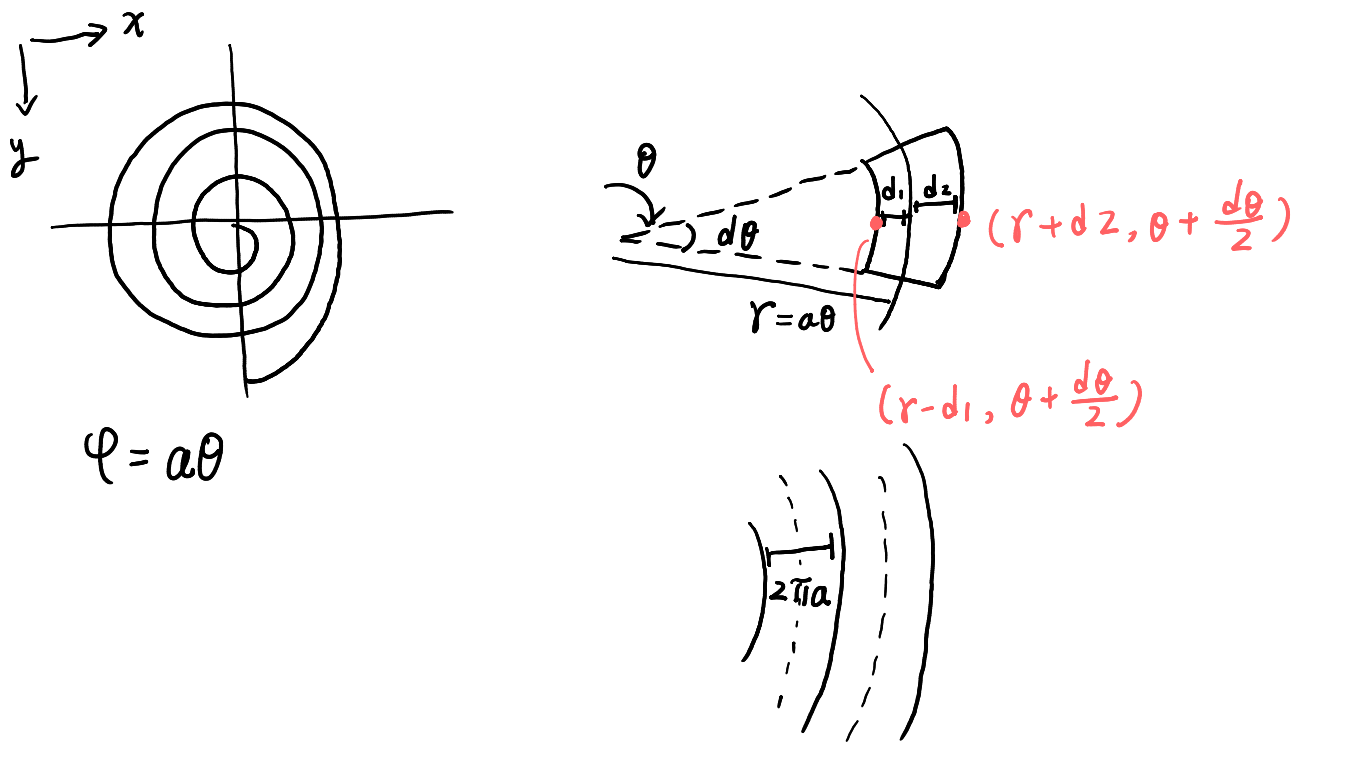 x
y
φ = aθ
θ
dθ
d1
d2
r = aθ
(r + d2, θ + dθ/2)
(r - d1, θ + dθ/2)
2πa